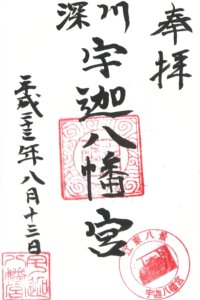 奉拝
深川
宇迦八幡宮
平成二十三年八月十三日
江東八幡
宇迦八幡宮